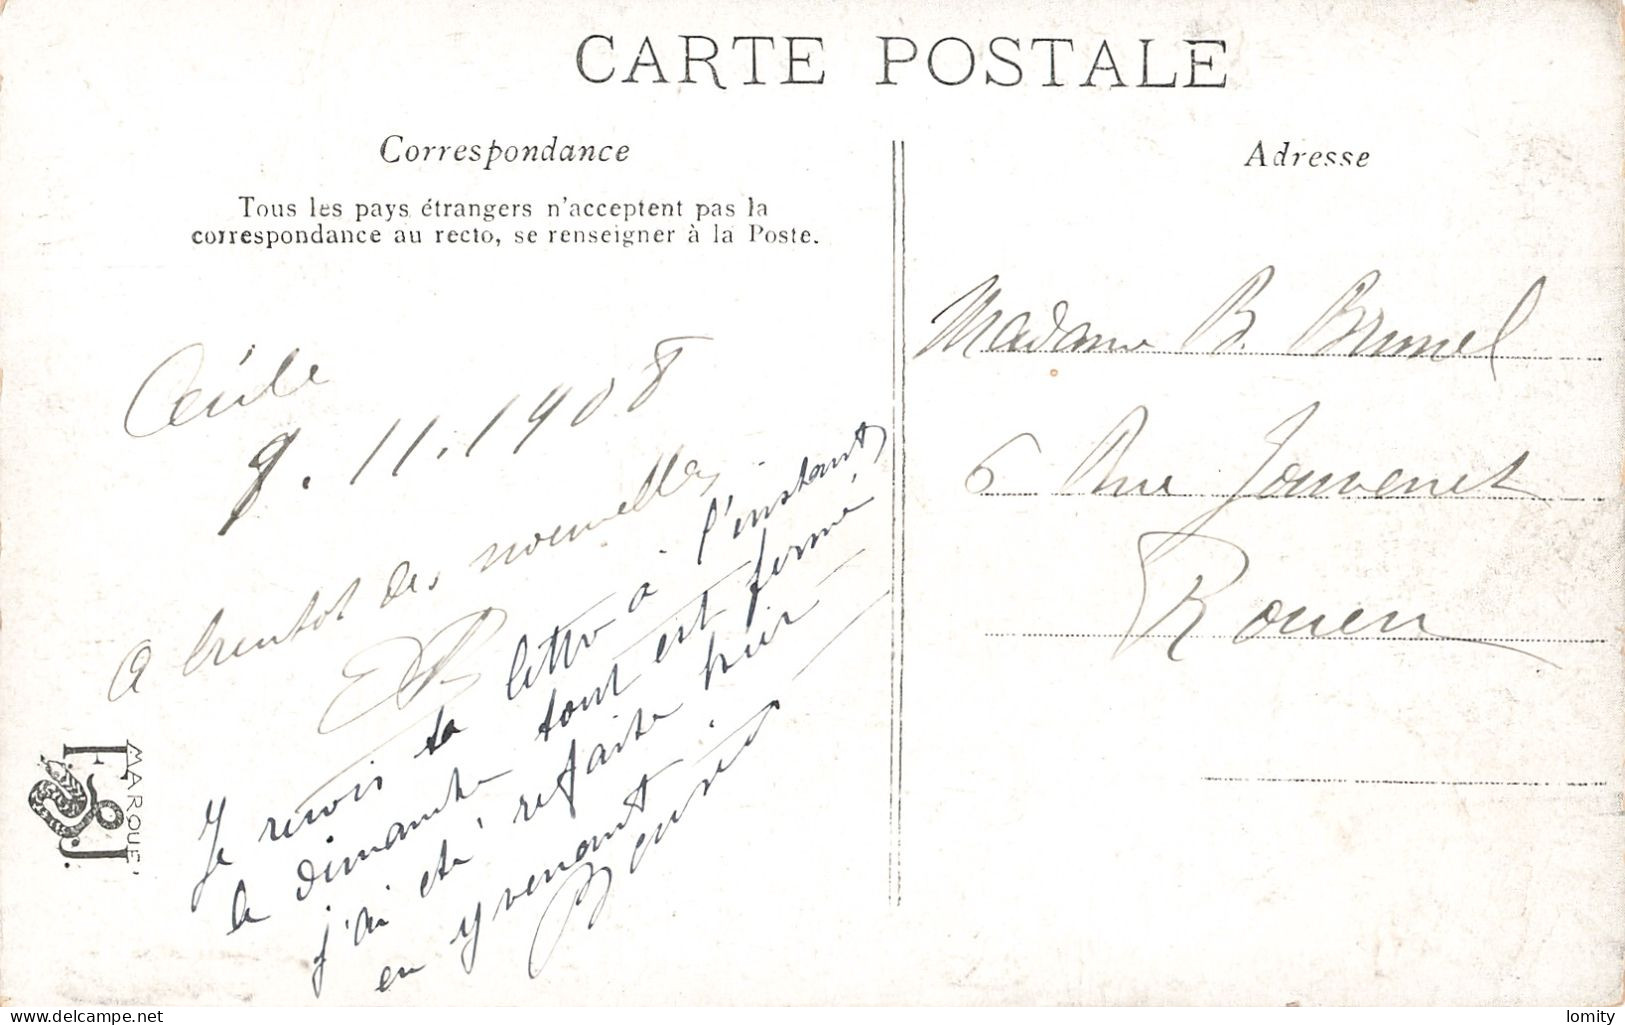 CARTE POSTALE
Correspondance
Tous les pays étrangers n'acceptent pas la
correspondance au recto, se renseigner à la Poste.
Cécile
9.11.1908
A bientot des nouvelles
Je recois ta lettre a l'instant
le dimanche tout est fermé
j'ai été refaite hier
en y venant.
MARQUE
Adresse
Madame B. Brunel
6 Rue Jouvenet
Rouen
delcampe.net
lomity